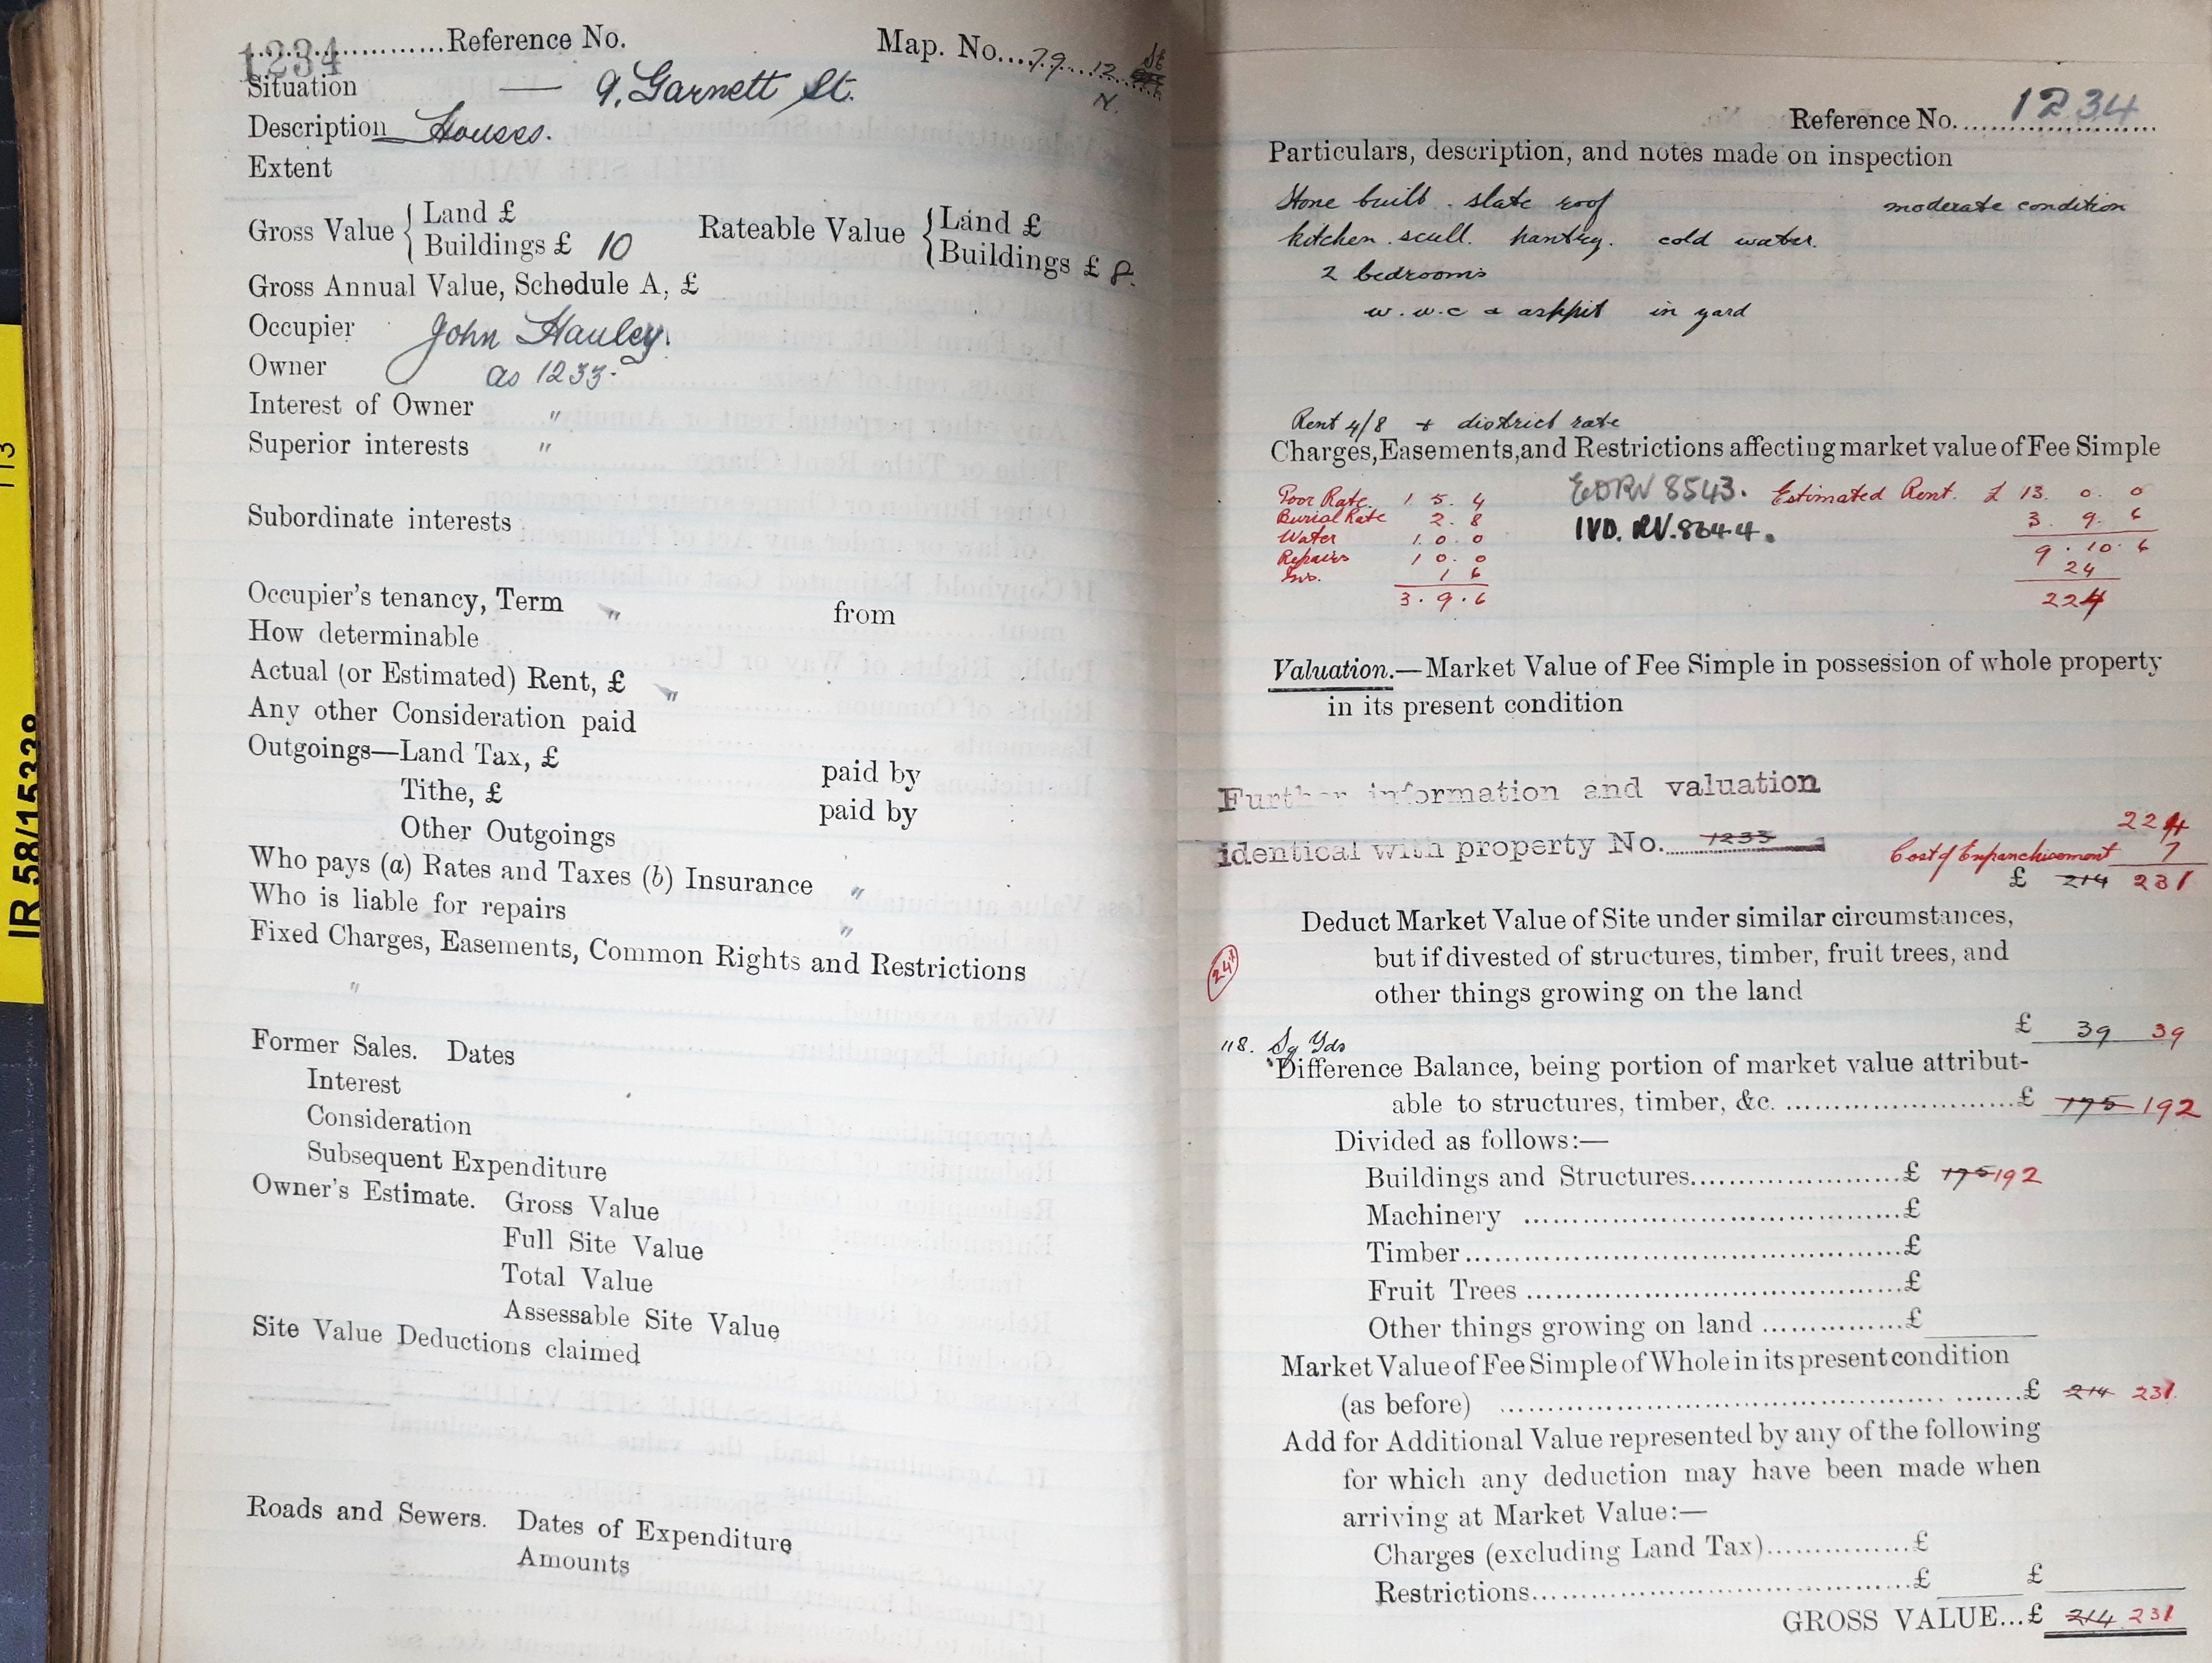 1234
Reference No.
Map. No. 79. 12 St
N.
Situation — 9, Garnett St.
Description Houses.
Extent
Gross Value { Land £
Buildings £ 10
Rateable Value { Land £
Buildings £ 8.
Gross Annual Value, Schedule A, £
Occupier John Hauley.
Owner as 1233.
Interest of Owner "
Superior interests "
Subordinate interests
Occupier's tenancy, Term " from
How determinable
Actual (or Estimated) Rent, £ "
Any other Consideration paid
Outgoings—Land Tax, £ paid by
Tithe, £ paid by
Other Outgoings
Who pays (a) Rates and Taxes (b) Insurance "
Who is liable for repairs "
Fixed Charges, Easements, Common Rights and Restrictions
"
Former Sales. Dates
Interest
Consideration
Subsequent Expenditure
Owner's Estimate. Gross Value
Full Site Value
Total Value
Assessable Site Value
Site Value Deductions claimed
Roads and Sewers. Dates of Expenditure
Amounts
IR 58/15338
113
Reference No. 1234
Particulars, description, and notes made on inspection
Stone built. slate roof moderate condition
kitchen. scull. pantry. cold water.
2 bedrooms
w.w.c & ashpit in yard
Rent 4/8 + district rate
Charges, Easements, and Restrictions affecting market value of Fee Simple
Poor Rate. 1 5. 4
Burial Rate 2. 8
Water 1. 0. 0
Repairs 1 0. 0
Ins. 1 6
3. 9. 6
EDRV 8543.
IVD. RV. 8644.
Estimated Rent. £ 13. 0. 0
3. 9. 6
9. 10. 6
24
224
Valuation.—Market Value of Fee Simple in possession of whole property
in its present condition
Further information and valuation
identical with property No. 1233
224
Cost of Enfranchisement 7
£ 214 231
Deduct Market Value of Site under similar circumstances,
but if divested of structures, timber, fruit trees, and
other things growing on the land
£ 39 39
118. Sq Yds
Difference Balance, being portion of market value attribut-
able to structures, timber, &c. £ 175 192
Divided as follows:—
Buildings and Structures £ 175 192
Machinery £
Timber £
Fruit Trees £
Other things growing on land £
Market Value of Fee Simple of Whole in its present condition
(as before) £ 214 231.
Add for Additional Value represented by any of the following
for which any deduction may have been made when
arriving at Market Value:—
Charges (excluding Land Tax) £
Restrictions £ £
GROSS VALUE...£ 214 231